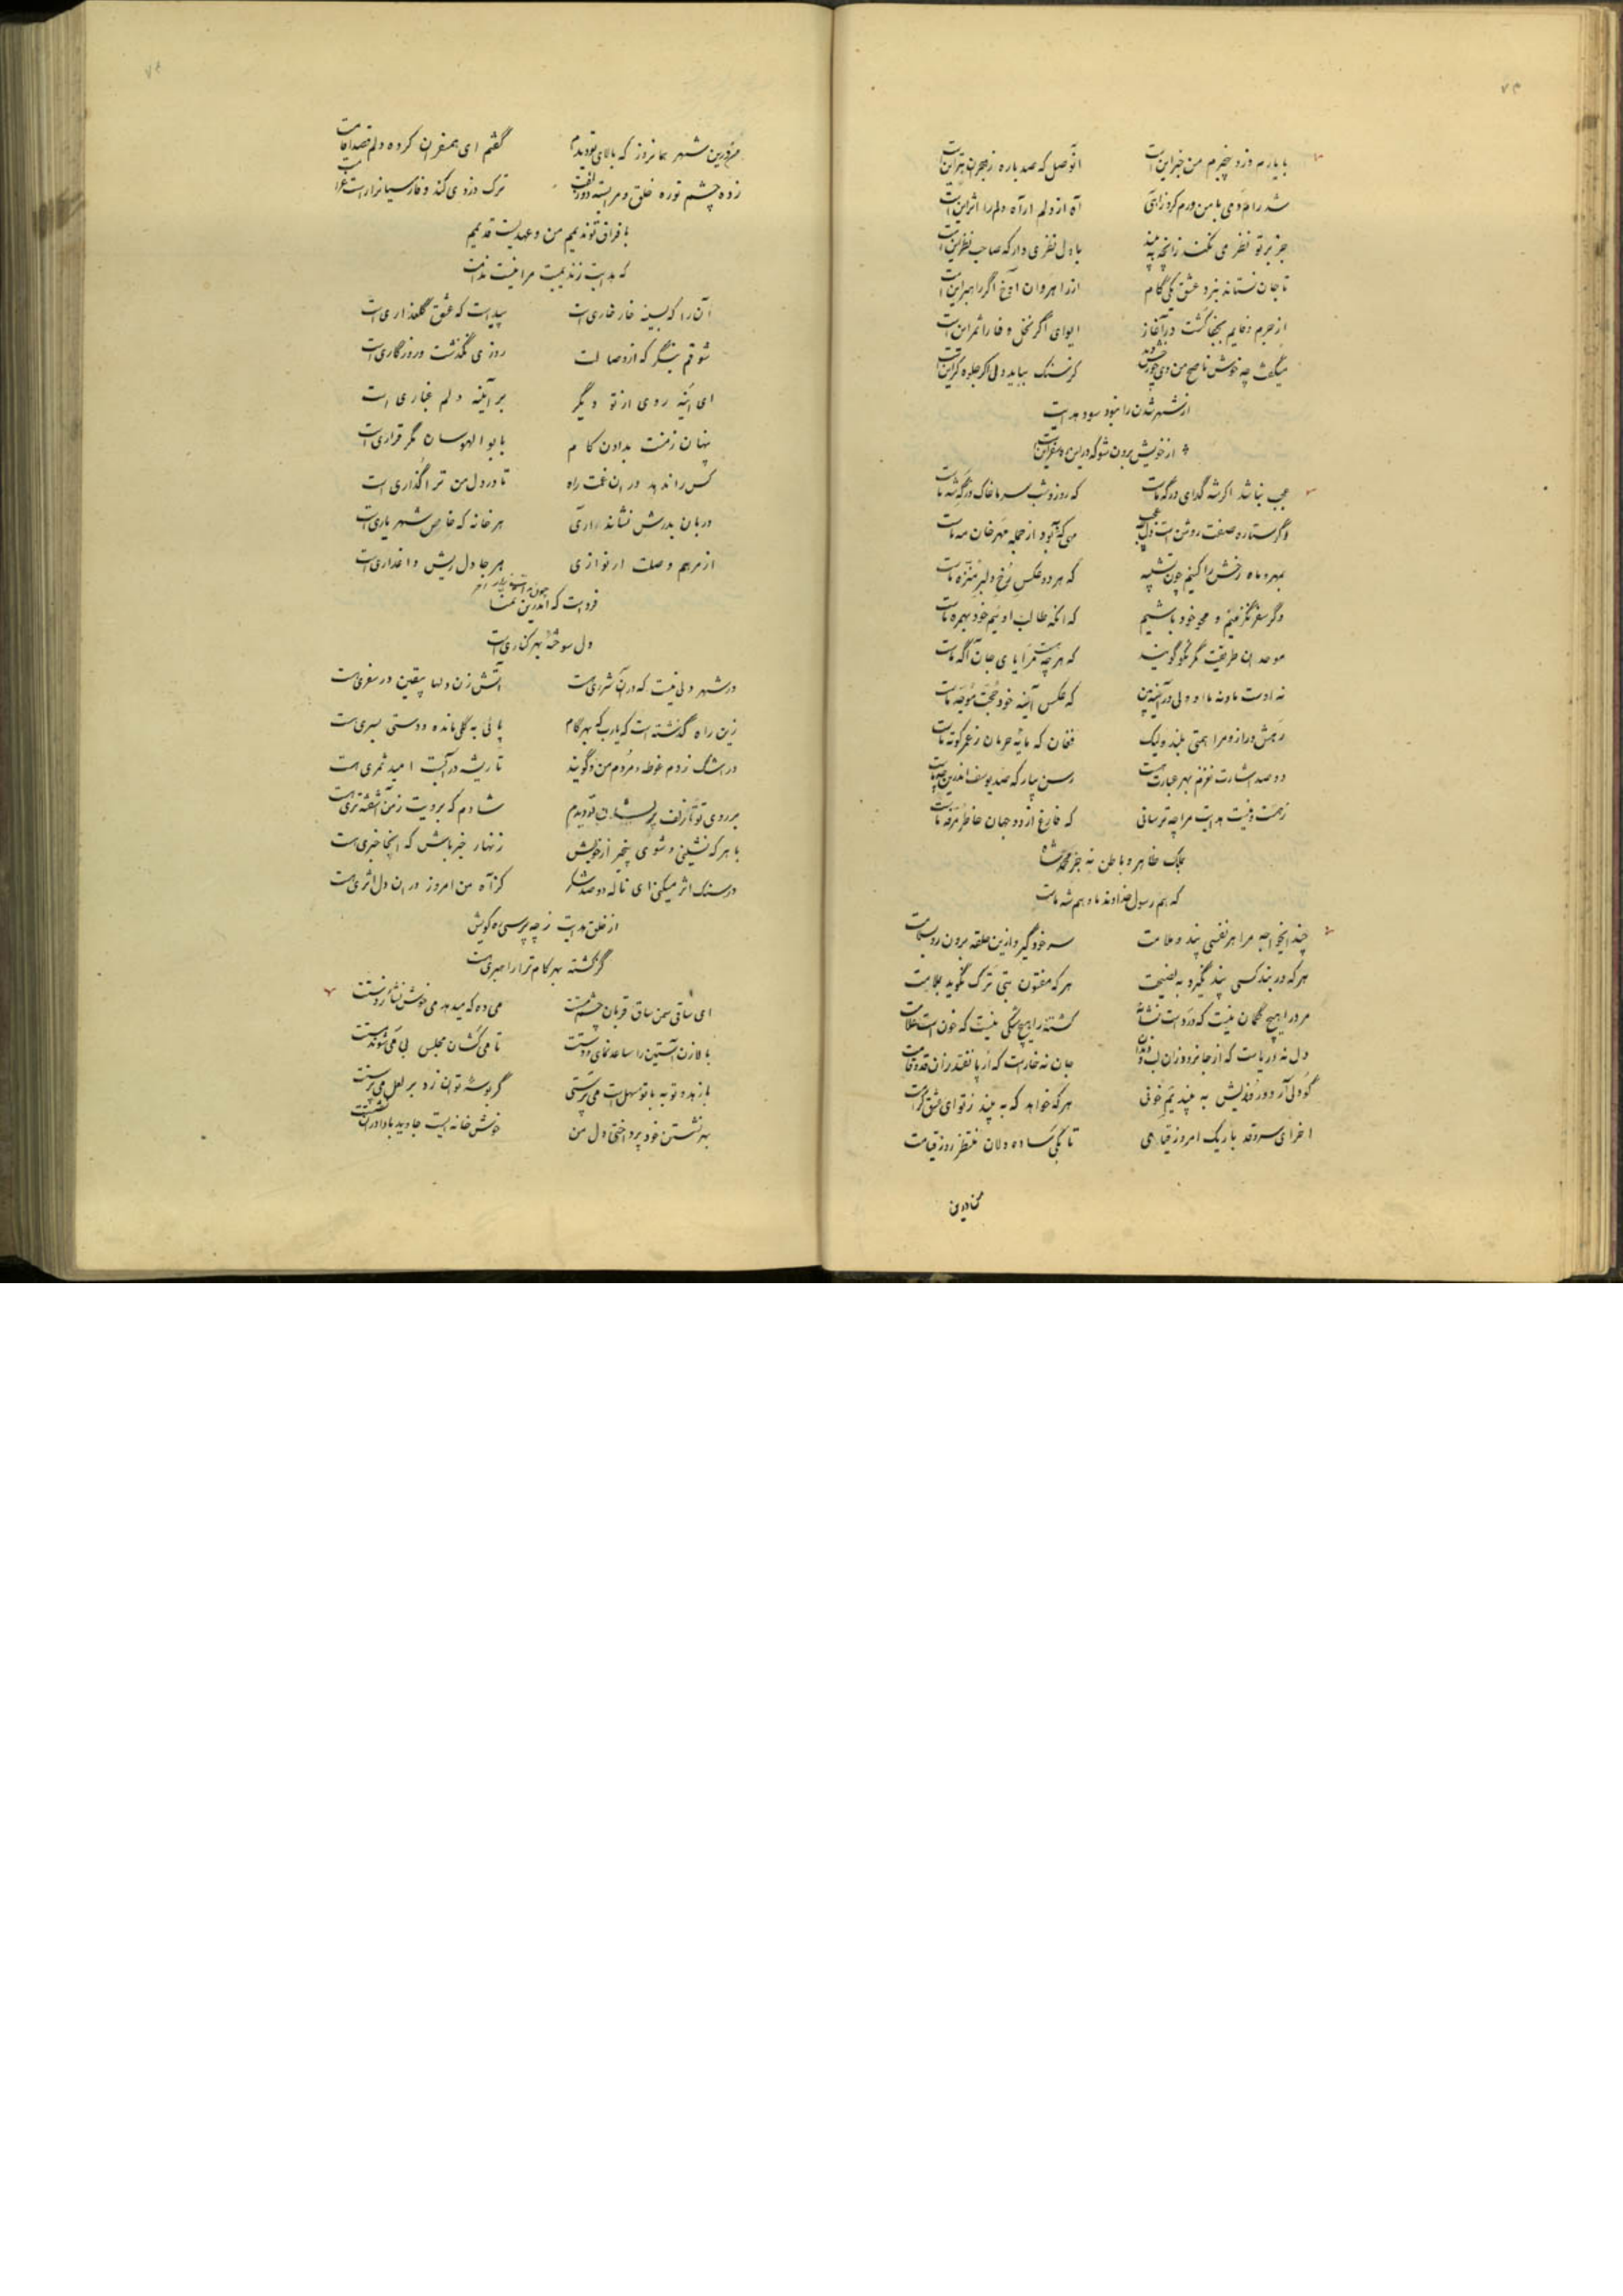 ۷۳
با یارم و زو بیخبرم من خبر این است آن وصل که صد باره ز هجران بتر این است
شد رام دمی با من و رم کرد ز آهی آه از دلم ار آه دلم را اثر این است
جز بر تو نظر می نکند زانچه به بیند با دل نظری دار که صاحب نظر این است
تا جان نستاند نبرد عشق یکی گام از راهروان آوخ اگر راهبر این است
از جرم وفایم بجفا کشت در آغاز ایوای اگر نخل وفا را ثمر این است
میگفت چه خوش ناصح من دی چو رخش دید کز سنگ بباید دلی ار جلوه گر این است
از شهر شدن را نبود سود هدایت
از خویش برون شو که درین ره سفر این است
عجب نباشد اگر شه گدای درگه ماست که روز و شب سر ما خاک درگه شه ماست
اگر ستاره صفت روشن است دل چه عجب می که بود از جمله مهرخان مه ماست
بمهر و ماه رخش را کنیم چون تشبیه که هر دو عکس رخ دلبر منزه ماست
دگر سفر نگزینیم و محو خود باشیم که آنکه طالب اوئیم خود بهمره ماست
موحدان طریقیت گر نکو گویند که هر چه هست سراپای جان آگه ماست
نه اوست ما و نه ما او ولی در آینه بین که عکس آینه خود حجت موجه ماست
رهش دراز و مرا همتی بلند ولیک فغان که مایه حرمان ز عمر کوته ماست
دو صد اشارت نغزم بهر عبارت هست رسن بیار که صد یوسف اندرین چه ماست
ز هست و نیست هدایت مرا چه ترسانی که فارغ از دو جهان خاطر مرفه ماست
بملک ظاهر و باطن نه جز محمد شاه
که هم رسول خداوند ما و هم شه ماست
چند ایخواجه مرا هر نفسی پند و ملامت سر خود گیر و ازین حلقه برون رو بسلامت
هر که در بند کسی پند نگیرد به نصیحت هر که مفتون بتی ترک نگوید بملامت
مرد را هیچ گمان نیست که درد است نشانه کشته را هیچ شکی نیست که خون است علامت
دل نه دریاست که از جا نرود زان لب و دندان جان نه خارست که از پا نفتد زان قد و قامت
گو دلی آر و در دلیش به بیند یم خونی هر که خواهد که به بیند ز تو ای عشق کرامت
آخر ای سرو قد باریک امروز قیامی تا بکی ساده دلان منتظر روز قیامت
من درین
۷۴
من درین شهر همانروز که بالای تو دیدم گفتم ای همسفران کرده دلم قصد اقامت
زده چشم تو ره خلق و مرا بسته دو زلفت ترک دزدی کند و فارسیانراست غرامت
با فراق تو ندیمیم من و عهدیست قدیم
که هدایت ز ندیمیت مرا نیست ندامت
آن را که بسینه خار خاری است پیداست که عشق گلعذاری است
شوقم بنگر که از وصالت روزی نگذشت و روزگاری است
ای آینه روی از تو دیگر بر آینه دلم غباری است
پنهان ز منت بدادن کام با بوالهوسان مگر قراری است
کس را ندهد در آن غمت راه تا در دل من ترا گذاری است
دربان بدرش نشاند آری هر خانه که خاص شهریاری است
از مرهم وصلت ار نوازی هر جا دل ریش و داغداری است
فرد است که اندرین تمنا
دل سوخته بهر کناری است
در شهر دلی نیست که در آن شرری هست آتش زن دلها بیقین در سفری هست
زین راه گذشته است که یارب که بهر گام پائی به گلی مانده و دستی بسری هست
در اشک زدم غوطه و مردم من و گویند تا ریشه در آبست امید ثمری هست
بر روی تو تا زلف پریشان تو دیدم شادم که برویت ز من آشفته تری هست
با هر که نشینی و شوی بیخبر از خویش زنهار خبر باش که اینجا خبری هست
در سنگ اثر میکنی ای ناله دو صد شکر کز آه من امروز در آن دل اثری هست
از خلق هدایت ز چه پرسی ره کویش
گم گشته بهر گام ترا راهبری هست
ای ساقی سمن ساق قربان چشم مستت می ده که میدهد می خوش نشأه ز دستت
بالا زن آستین را ساعد نمای و دستت تا می کشان مجلس بی می شوند مستت
با زهد و توبه با تو سهل است می پرستی گر بوسه توان زد بر لعل می پرستت
بهر نشستن خود پرداختی دل من خوش خانه ایست جاوید بادا در آن نشستت